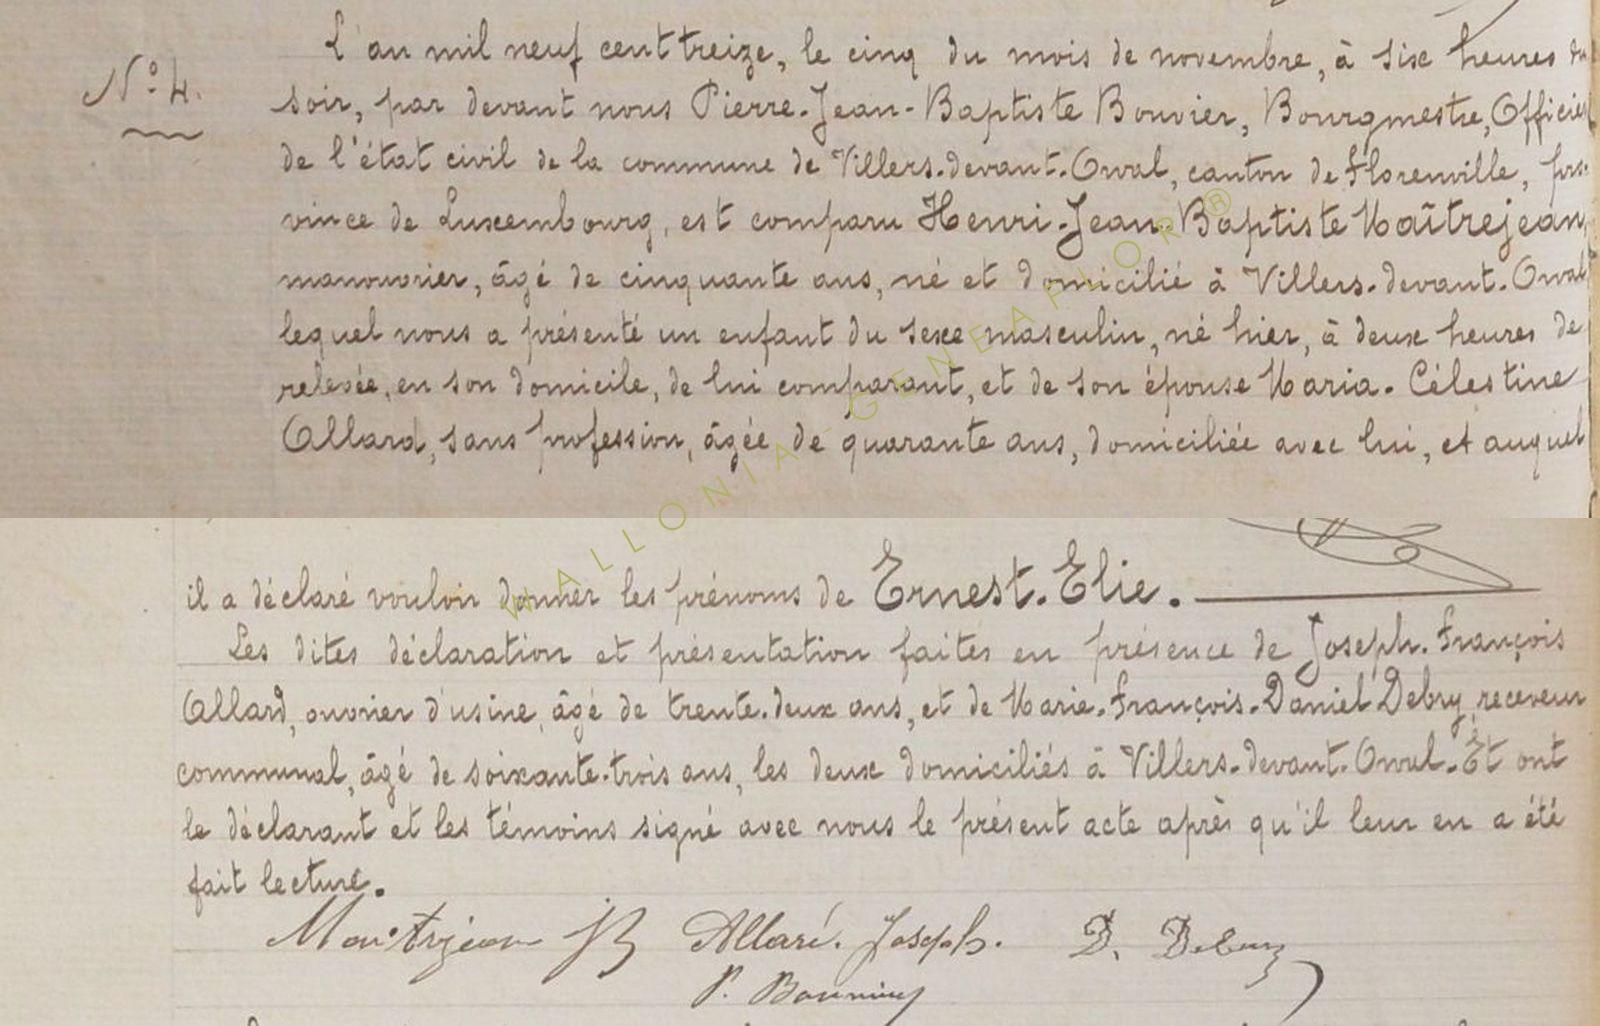 L'an mil neuf cent treize, le cinq du mois de novembre, à six heures du
N° 4.
soir, par devant nous Pierre-Jean-Baptiste Bouvier, Bourgmestre, Officier
de l'état civil de la commune de Villers-devant-Orval, canton de Florenville, pro-
vince de Luxembourg, est comparu Henri-Jean-Baptiste Maîtrejean,
manouvrier, âgé de cinquante ans, né et domicilié à Villers-devant-Orval
lequel nous a présenté un enfant du sexe masculin, né hier, à deux heures de
relevée, en son domicile, de lui comparant, et de son épouse Maria-Célestine
Allard, sans profession, âgée de quarante ans, domiciliée avec lui, et auquel
WALLONIA-GENEAFLOR®
il a déclaré vouloir donner les prénoms de Ernest-Elie.
Les dites déclaration et présentation faites en présence de Joseph-François
Allard, ouvrier d'usine, âgé de trente-deux ans, et de Marie-François-Daniel Debry, receveur
communal, âgé de soixante-trois ans, les deux domiciliés à Villers-devant-Orval. Et ont
le déclarant et les témoins signé avec nous le présent acte après qu'il leur en a été
fait lecture.
Maitrejean JB Allard Joseph. D. Debry
P. Bouvier